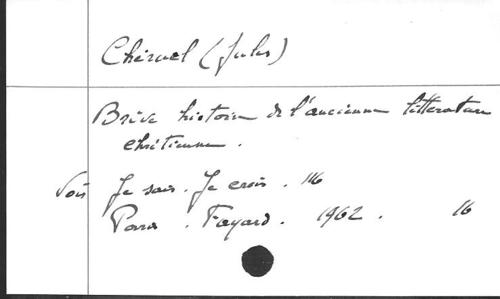 Cheruel (Jules)
Brève histoire de l'ancienne littérature
chrétienne.
Voir Je sais. Je crois. 116
Paris. Fayard. 1962. 16